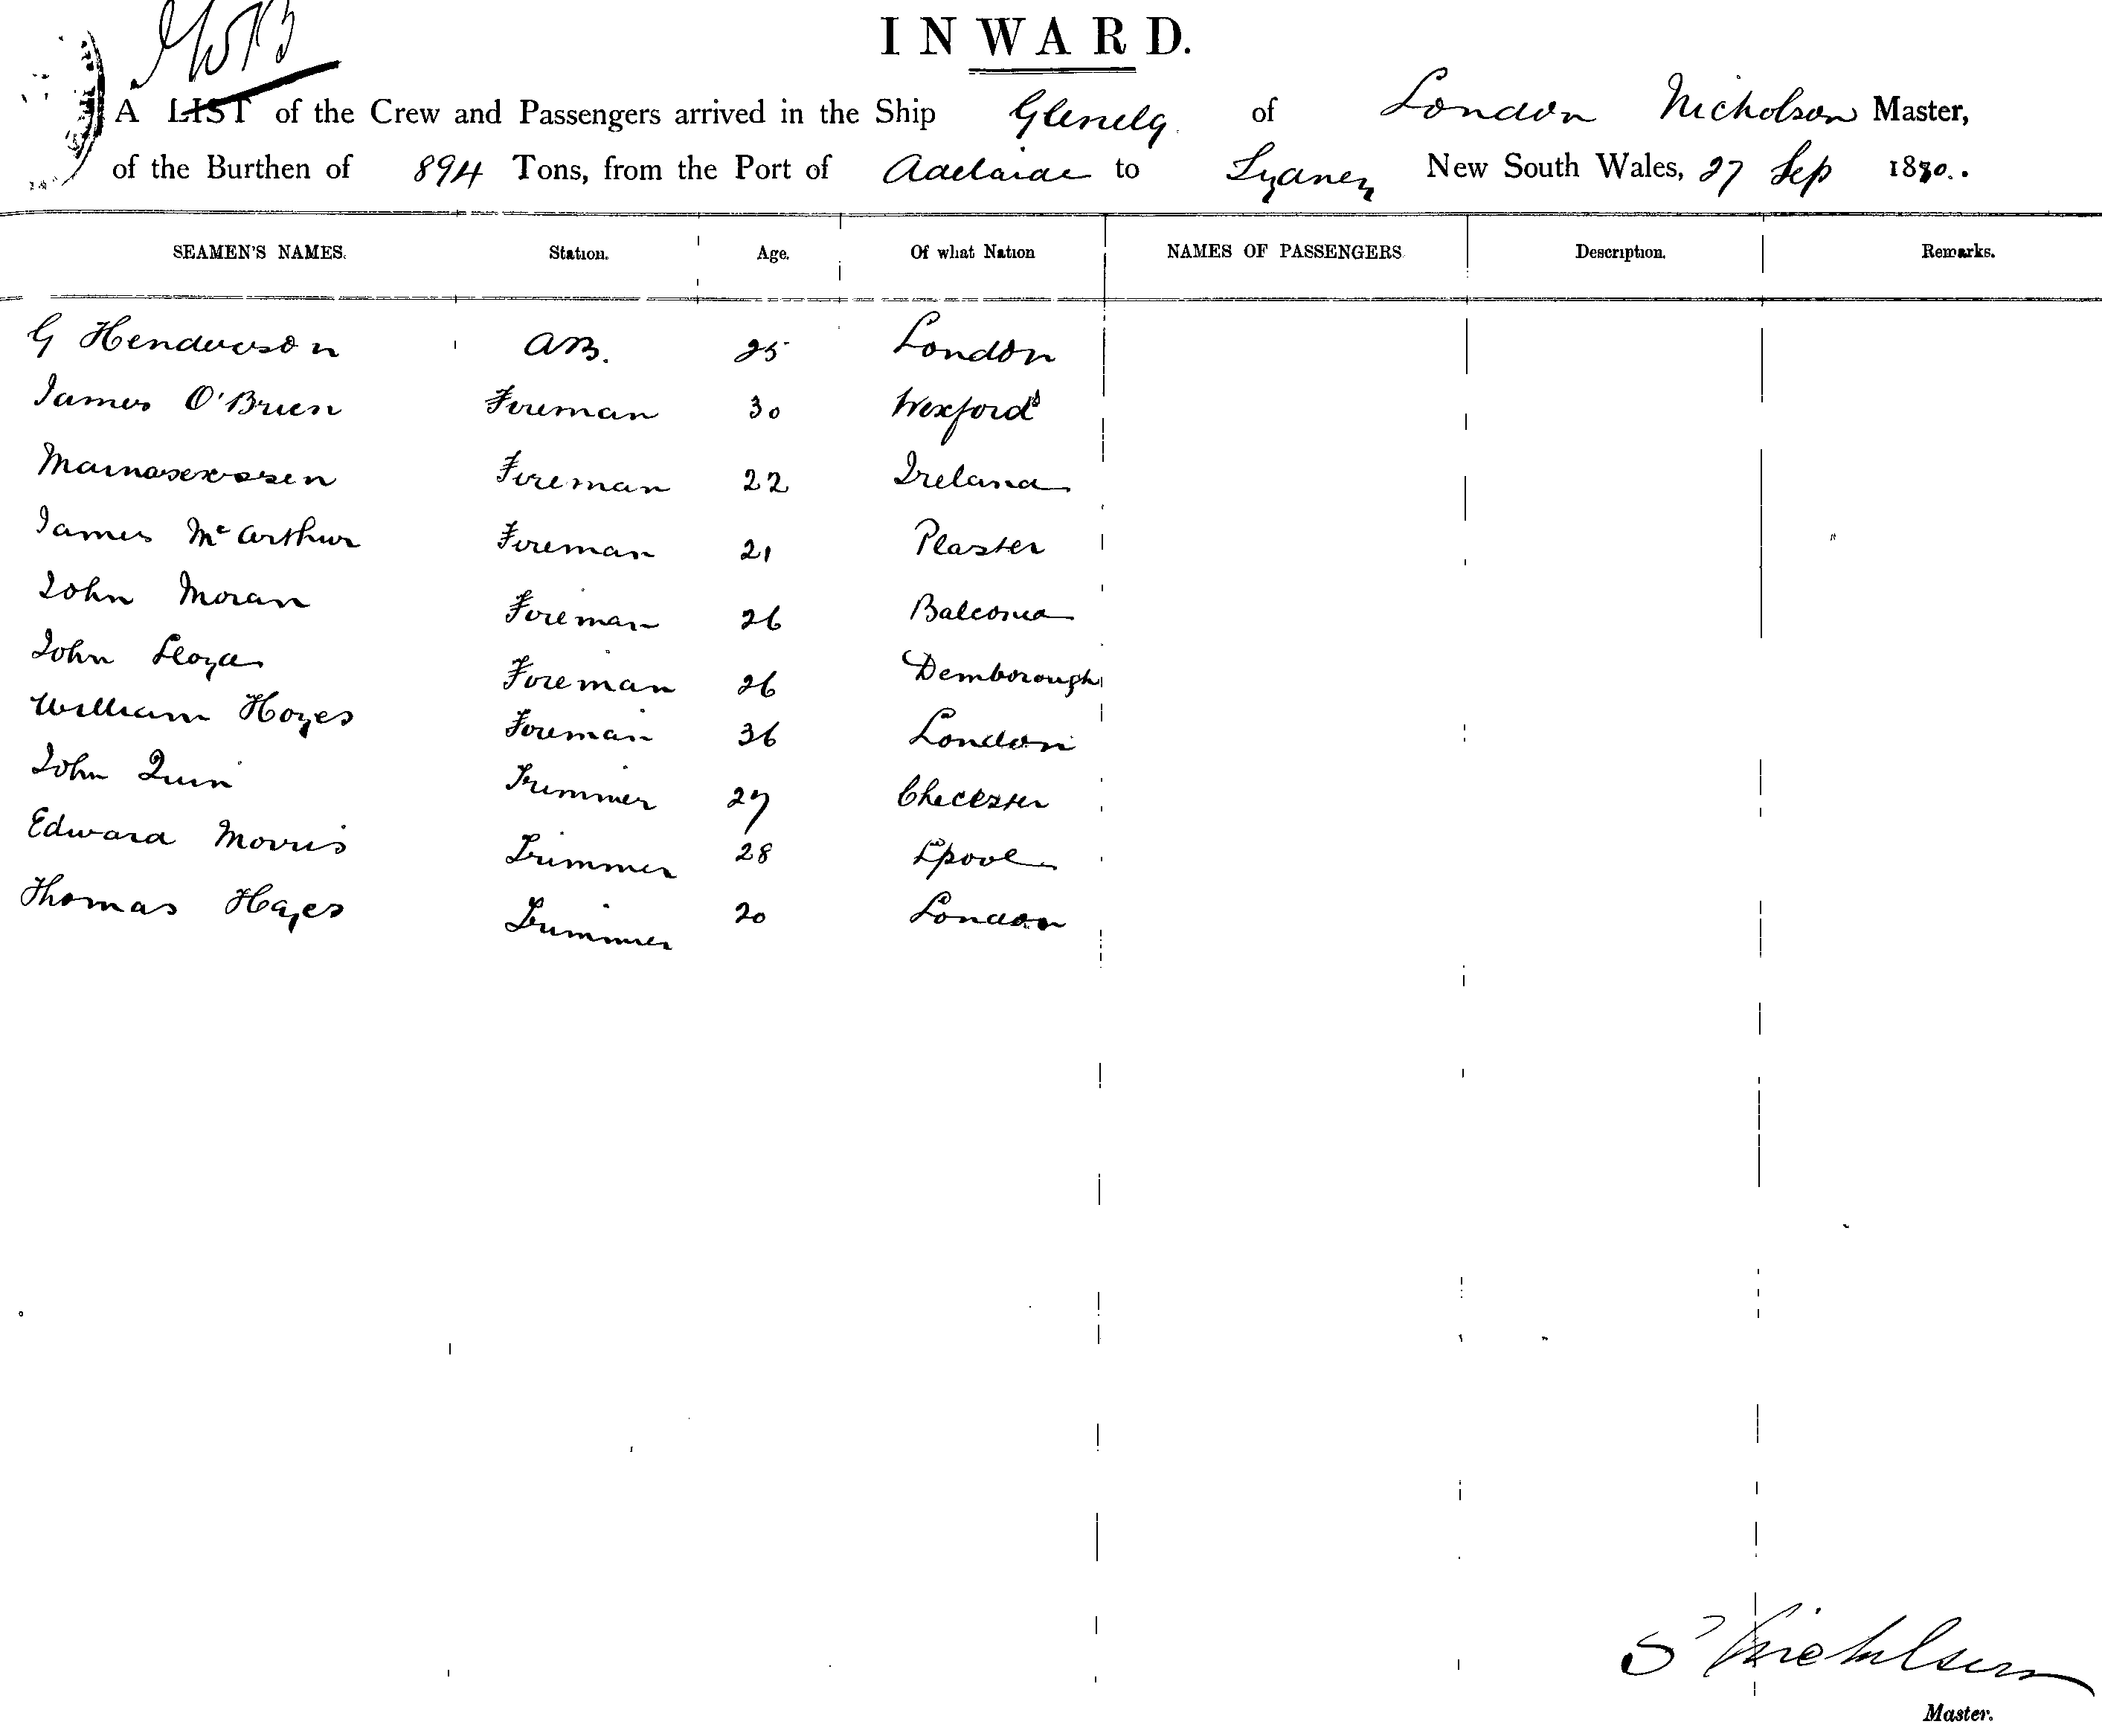 INWARD.
A LIST of the Crew and Passengers arrived in the Ship Glenelg of London Nicholson Master,
of the Burthen of 894 Tons, from the Port of Adelaide to Sydney New South Wales, 27 Sep 1880.
SEAMEN'S NAMES. Station. Age. Of what Nation NAMES OF PASSENGERS Description. Remarks.
G Henderson AB. 25 London
James O'Brien Fireman 30 Wexford
Fireman 22 Ireland
James McArthur Fireman 21 Plaster
John Moran Fireman 26
John Lloyd Fireman 26 Demborough
William Hoyes Fireman 36 London
John Quin Trimmer 27
Edward Morris Trimmer 28 Lpool
Thomas Hayes Trimmer 20 London
S Nicholson
Master.